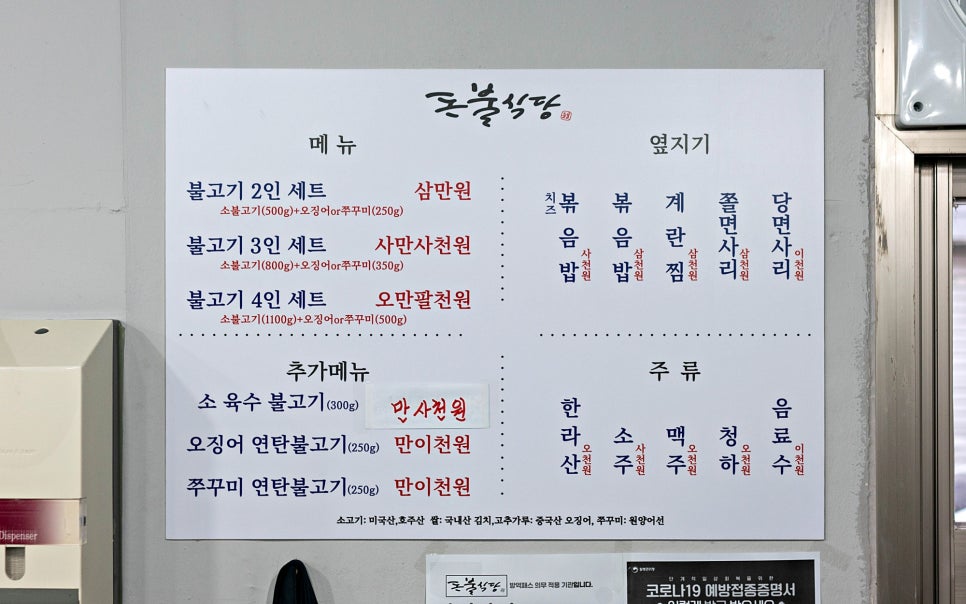 돈불식당
메 뉴
불고기 2인 세트 삼만원
소불고기(500g)+오징어or쭈꾸미(250g)
불고기 3인 세트 사만사천원
소불고기(800g)+오징어or쭈꾸미(350g)
불고기 4인 세트 오만팔천원
소불고기(1100g)+오징어or쭈꾸미(500g)
옆지기
치즈볶음밥 사천원
볶음밥 삼천원
계란찜 삼천원
쫄면사리 삼천원
당면사리 이천원
추가메뉴
소 육수 불고기(300g) 만사천원
오징어 연탄불고기(250g) 만이천원
쭈꾸미 연탄불고기(250g) 만이천원
주 류
한라산 오천원
소주 사천원
맥주 오천원
청하 오천원
음료수 이천원
소고기: 미국산,호주산 쌀: 국내산 김치,고추가루: 중국산 오징어, 쭈꾸미: 원양어선
Dispenser
돈불식당 방역패스 의무 적용 기관입니다.
단계적일상회복을위한
코로나19 예방접종증명서